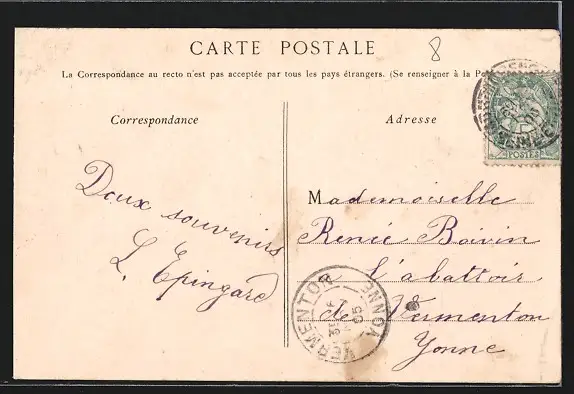 CARTE POSTALE
8
La Correspondance au recto n'est pas acceptée par tous les pays étrangers. (Se renseigner à la
Correspondance
Adresse
POSTES
Doux souvenirs
L. Epingard
Mademoiselle
Renée Boivin
à l'abattoir
de Vermenton
Yonne
VERMENTON
YONNE
05